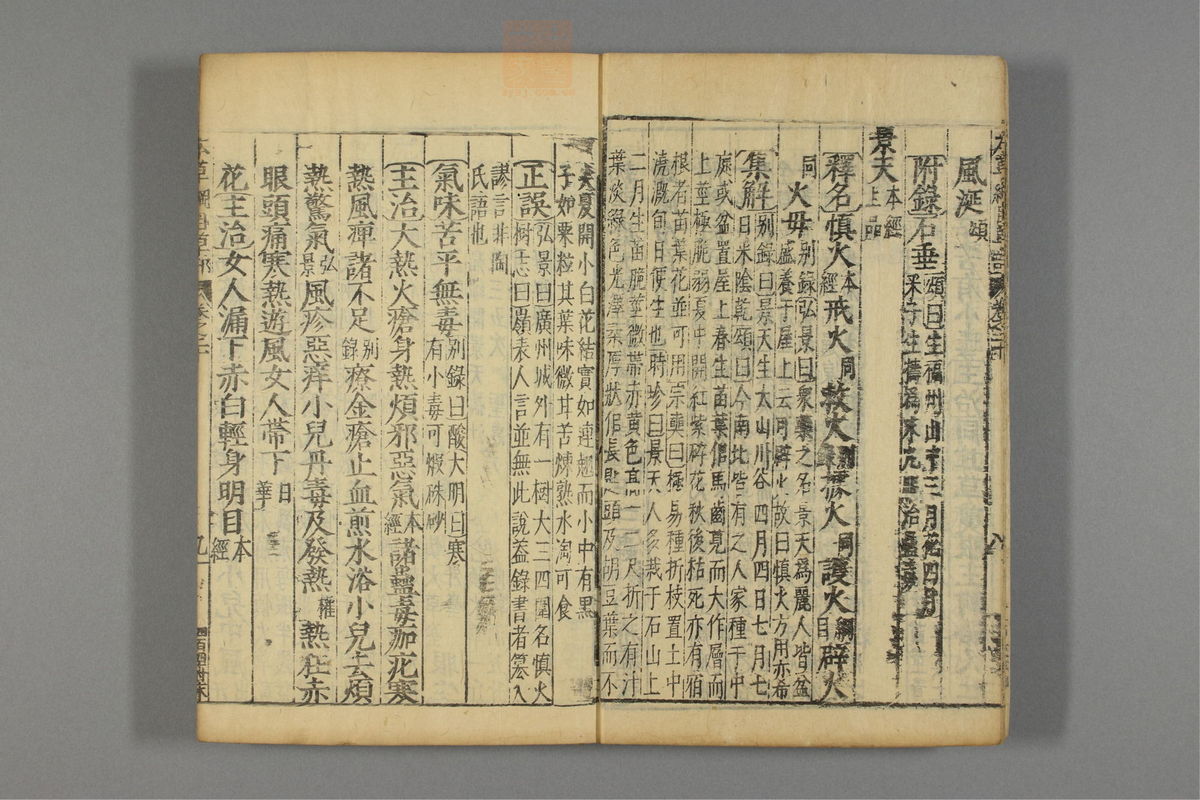 風涎頌
附錄石垂頌曰生福州山中三月花四月
采子生擣為末丸服治蠱毒
景天本經上品
釋名慎火本經戒火同救火別錄據火同護火綱目辟火
同火母別錄弘景曰衆藥之名景天為麗人皆盆
盛養于屋上云可辟火故曰慎火方用亦希
集解別錄曰景天生太山川谷四月四日七月七
日采陰乾頌曰今南北皆有之人家種于中
庭或盆置屋上春生苗葉似馬齒莧而大作層而
上莖極脆弱夏中開紅紫碎花秋後枯死亦有宿
根者苗葉花並可用宗奭曰極易種折枝置土中
澆溉旬日便生也時珍曰景天人多栽于石山上
二月生苗脆莖微帶赤黃色高一二尺折之有汁
葉淡綠色光澤柔厚狀似長匙頭及胡豆葉而不
尖夏開小白花結實如連翹而小中有黑
子如粟粒其葉味微甘苦煠熟水淘可食
正誤弘景曰廣州城外有一樹大三四圍名慎火
樹志曰嶺表人言並無此說蓋錄書者篡入
謬言非陶
氏語也
氣味苦平無毒別錄曰酸大明曰寒
有小毒可煅硃砂
主治大熱火瘡身熱煩邪惡氣本經諸蠱毒痂疕寒
熱風痺諸不足別錄療金瘡止血煎水浴小兒去煩
熱驚氣弘景風疹惡痒小兒丹毒及發熱權熱狂赤
眼頭痛寒熱遊風女人帶下日華
花主治女人漏下赤白輕身明目本經